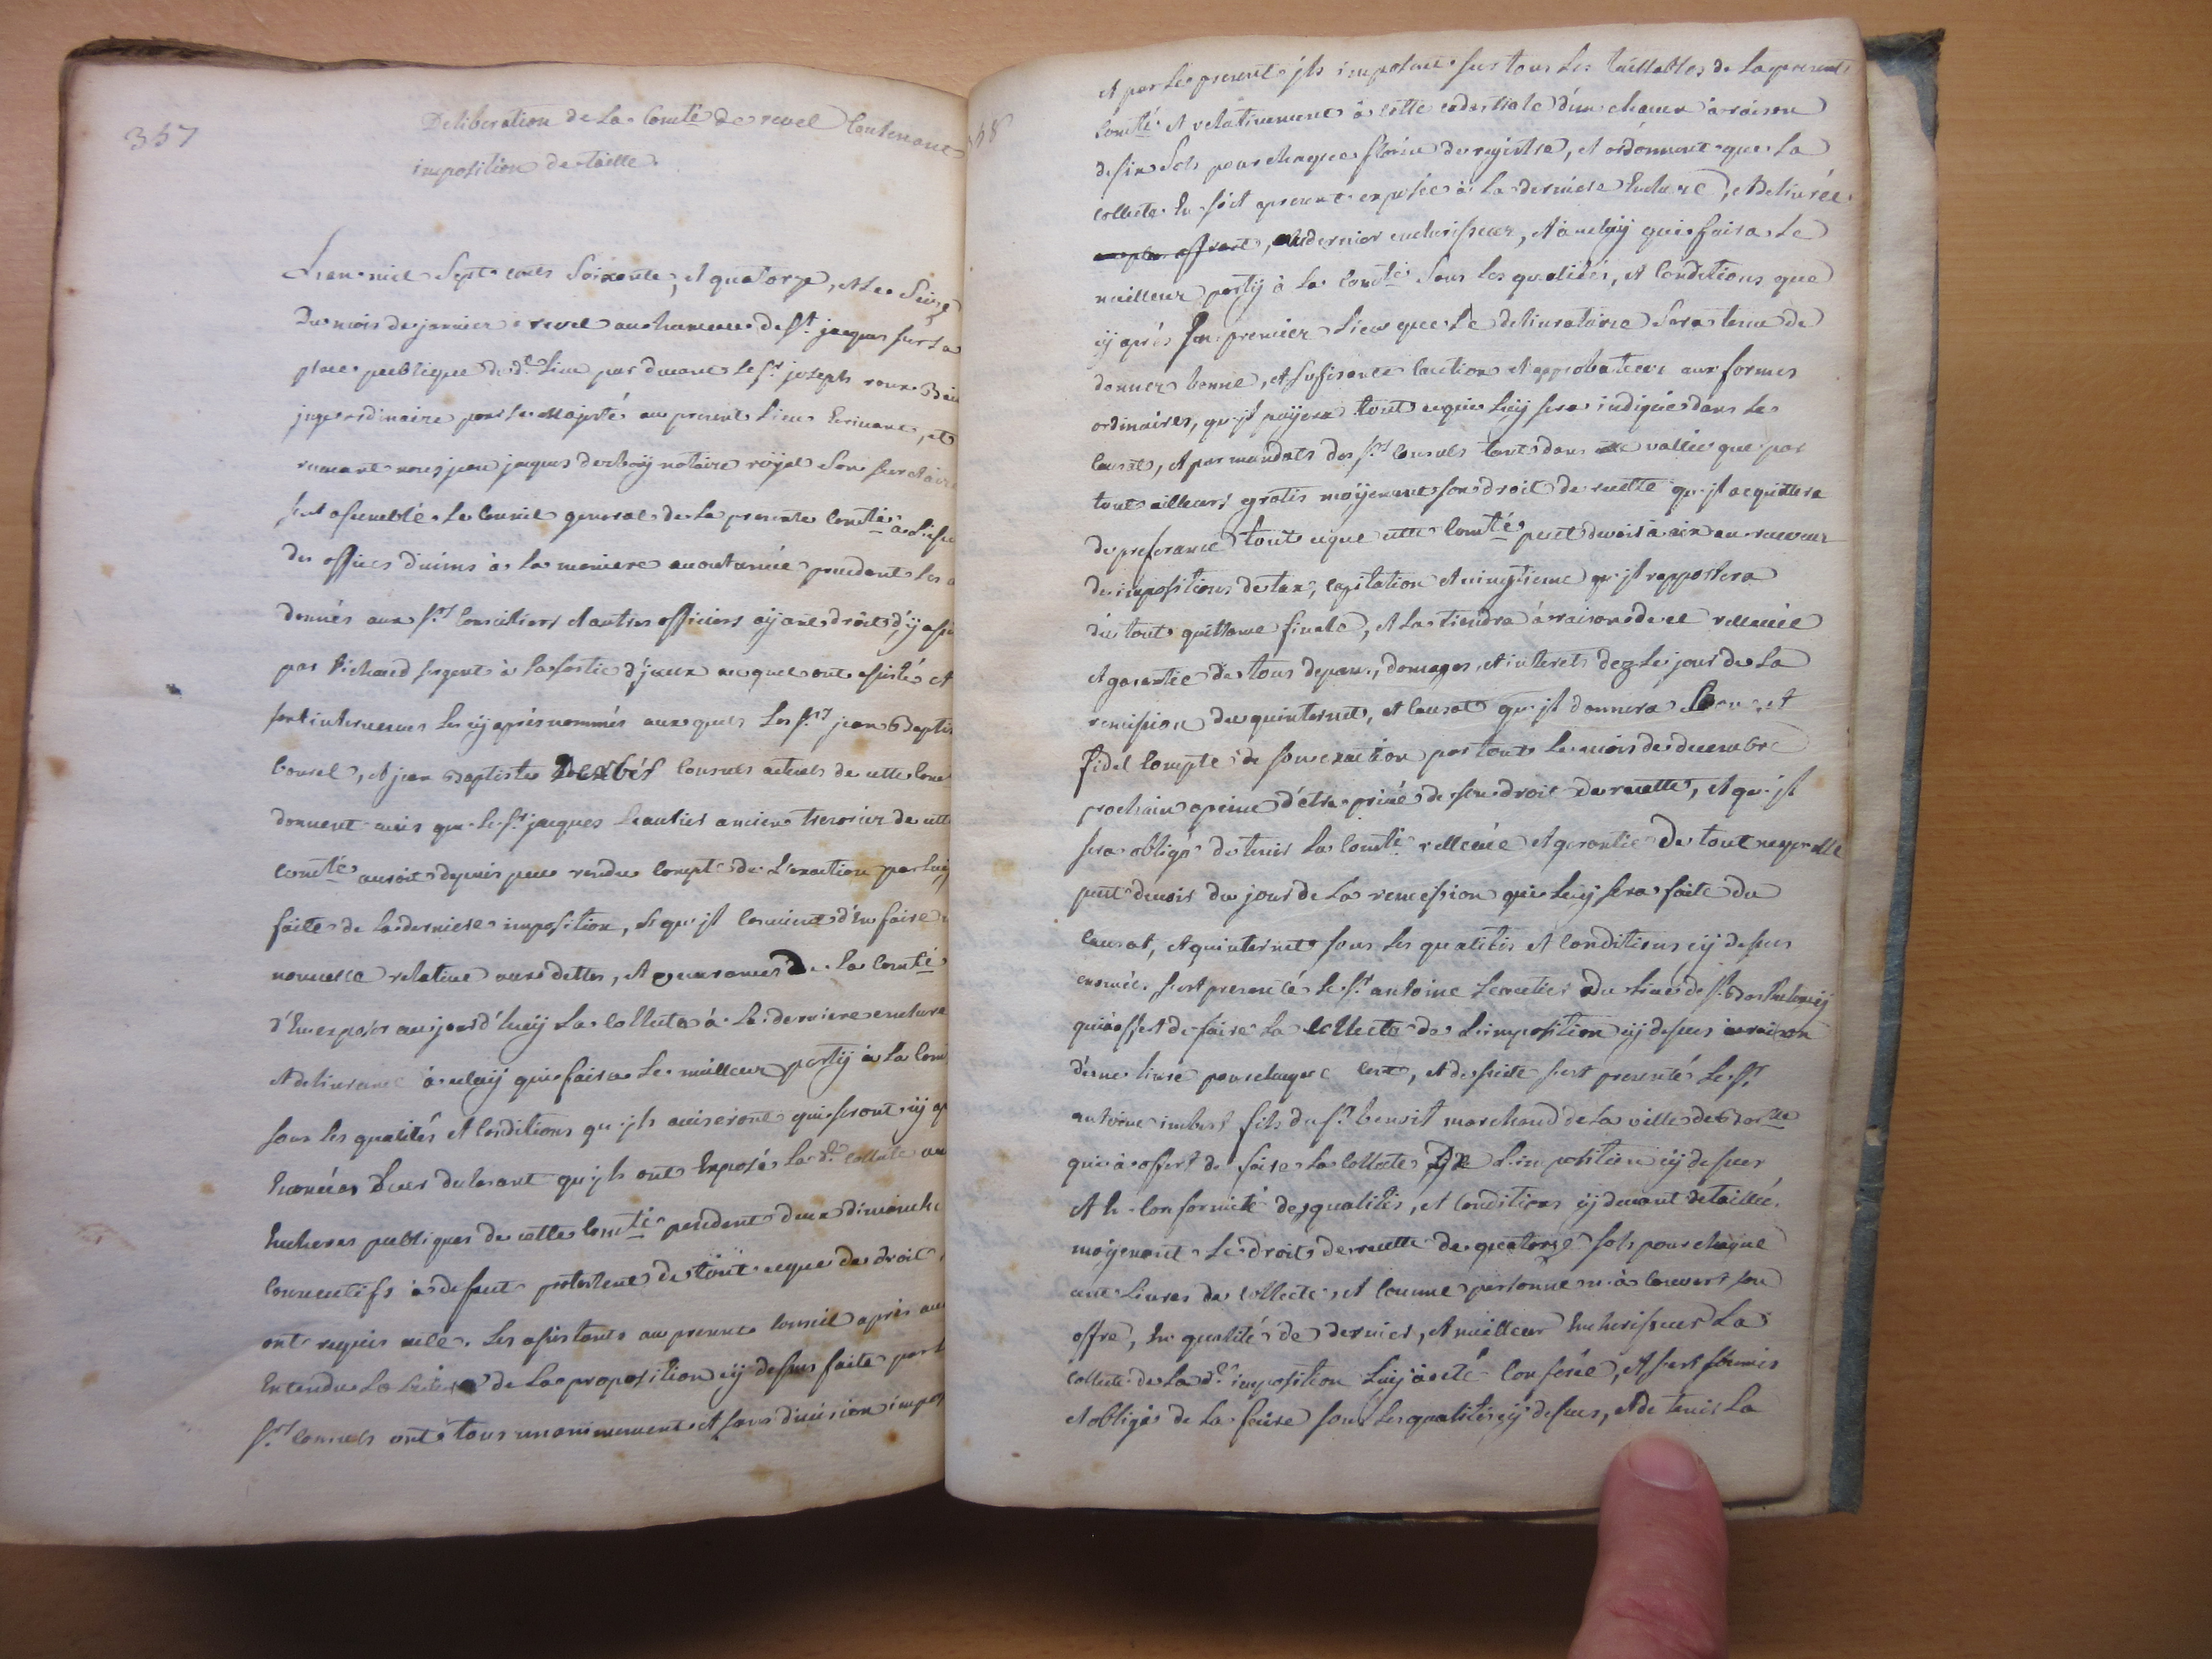 357
Deliberation de La Com.té de revel Contenant
imposition de taille
L'an mil Sept cents Soixante, et quatorze, et Le Seize
Du mois de janvier à revel au hameau de S.t jacques sur La
place publique du d.t Lieu par devant Le S.r joseph roux
juge ordinaire pour Sa Majesté au present Lieu Ecrivant, et
nous jean jacques notaire röyal Son
s'est assemblé Le Conseil general de La presente Com.té
des offices divins à La maniere accoutumée pendant Les
donnés aux S.rs Conseillers et autres officiers aÿant droit d'ÿ
par richaud sergent à La sortie d'jceux auquel ont assistés et
sont intervenus Les cÿ après nommés auxquels Les S.rs jean Baptiste
Consul, et jean Baptiste Derbés Consuls actuels de cette Com.té
donnent avis que Le S.r jacques Leautier ancien tresorier de cette
com.té auroit depuis peu rendu Compte de L'exaction par Luÿ
faite de La derniere imposition, et qu'jl Convient d'En faire
nouvelle relative aux dettes, et de La Com.té
d'En exposer aujourd'huÿ La Collecte à La derniere enchere
et delivrance à celuÿ qui faira Le meilleur partÿ à La Com.té
sous Les qualités et Conditions qu'jls aviseront qui seront cÿ
Enoncées qu'jls ont Exposé La d.te Collecte aux
Encheres publiques de cette Com.té pendant deux dimanches
Consecutifs à defaut protestent de tout ce que de droit
ont requis acte. Les assistants au present Conseil après avoir
Entendu La Lecture de La proposition cÿ dessus faite par
S.rs Consuls ont tous unanimement et sans division imposé
358
et par Le present jls imposent sur tous Les taillables de La presente
Com.té et relativement à cotte cadastrale d'un chacun à raison
de six Sols pour chaque florin de registre, et ordonnent que La
Collecte En soit à present exposée à La derniere Enchere, et delivrée
au plus offrant, au dernier encherisseur, et à celuÿ qui faira Le
meilleur partÿ à La Com.té sous Les qualités, et Conditions que
cÿ après En premier Lieu que Le delivrataire Sera tenu de
donner bonne, et sufisante Caution et approbateur aux formes
ordinaires, qu'jl païera tout ce qui Luÿ sera indiqué dans Le
Causat, et par mandats des S.rs Consuls tant dans vallée que par
tout ailleurs gratis moÿenant son droit de recette qu'jl acquittera
de preferance tout ce que cette Com.té peut devoir à aix au receveur
des impositions de taxe, capitation et vingtieme qu'jl rapportera
du tout quittance finale, et La tiendra à raison de ce rellevée
et garantie de tous depans, domages, et interets dez Le jour de La
remission du quinternet, et Causat qu'jl donnera Bon, et
fidel Compte de son exaction par tout Le mois de decembre
prochain à peine d'être privé de son droit de recette, et qu'jl
sera obligé de tenir La Com.té rellevée et garantie de tout ce qu'elle
peut devoir du jour de La remission que Luÿ sera faite du
Causat, et quinternet sous Les qualités et Conditions cÿ dessus
s'est presenté Le S.r antoine Leautier du Lieu de S.t Barthelemÿ
qui à offert de faire La Collecte de L'imposition cÿ dessus à raison
d'une Livre pour chaque Cent, et de suite s'est presenté Le S.r
antoine imbert fils du S.r benoit marchand de La ville de
qui à offert de faire La Collecte de L'imposition cÿ dessus
et En Conformité des qualités, et Conditions cÿ devant detaillés
moÿenant Le droit de recette de quatorze Sols pour chaque
cent Livres de Collecte, et Comme personne n'à Couvert son
offre, En qualité de dernier, et meilleur Encherisseur La
Collecte de La d.te imposition Luÿ à eté Conferée, et s'est soumis
et obligé de La faire sous Les qualités cÿ dessus, et de tenir La